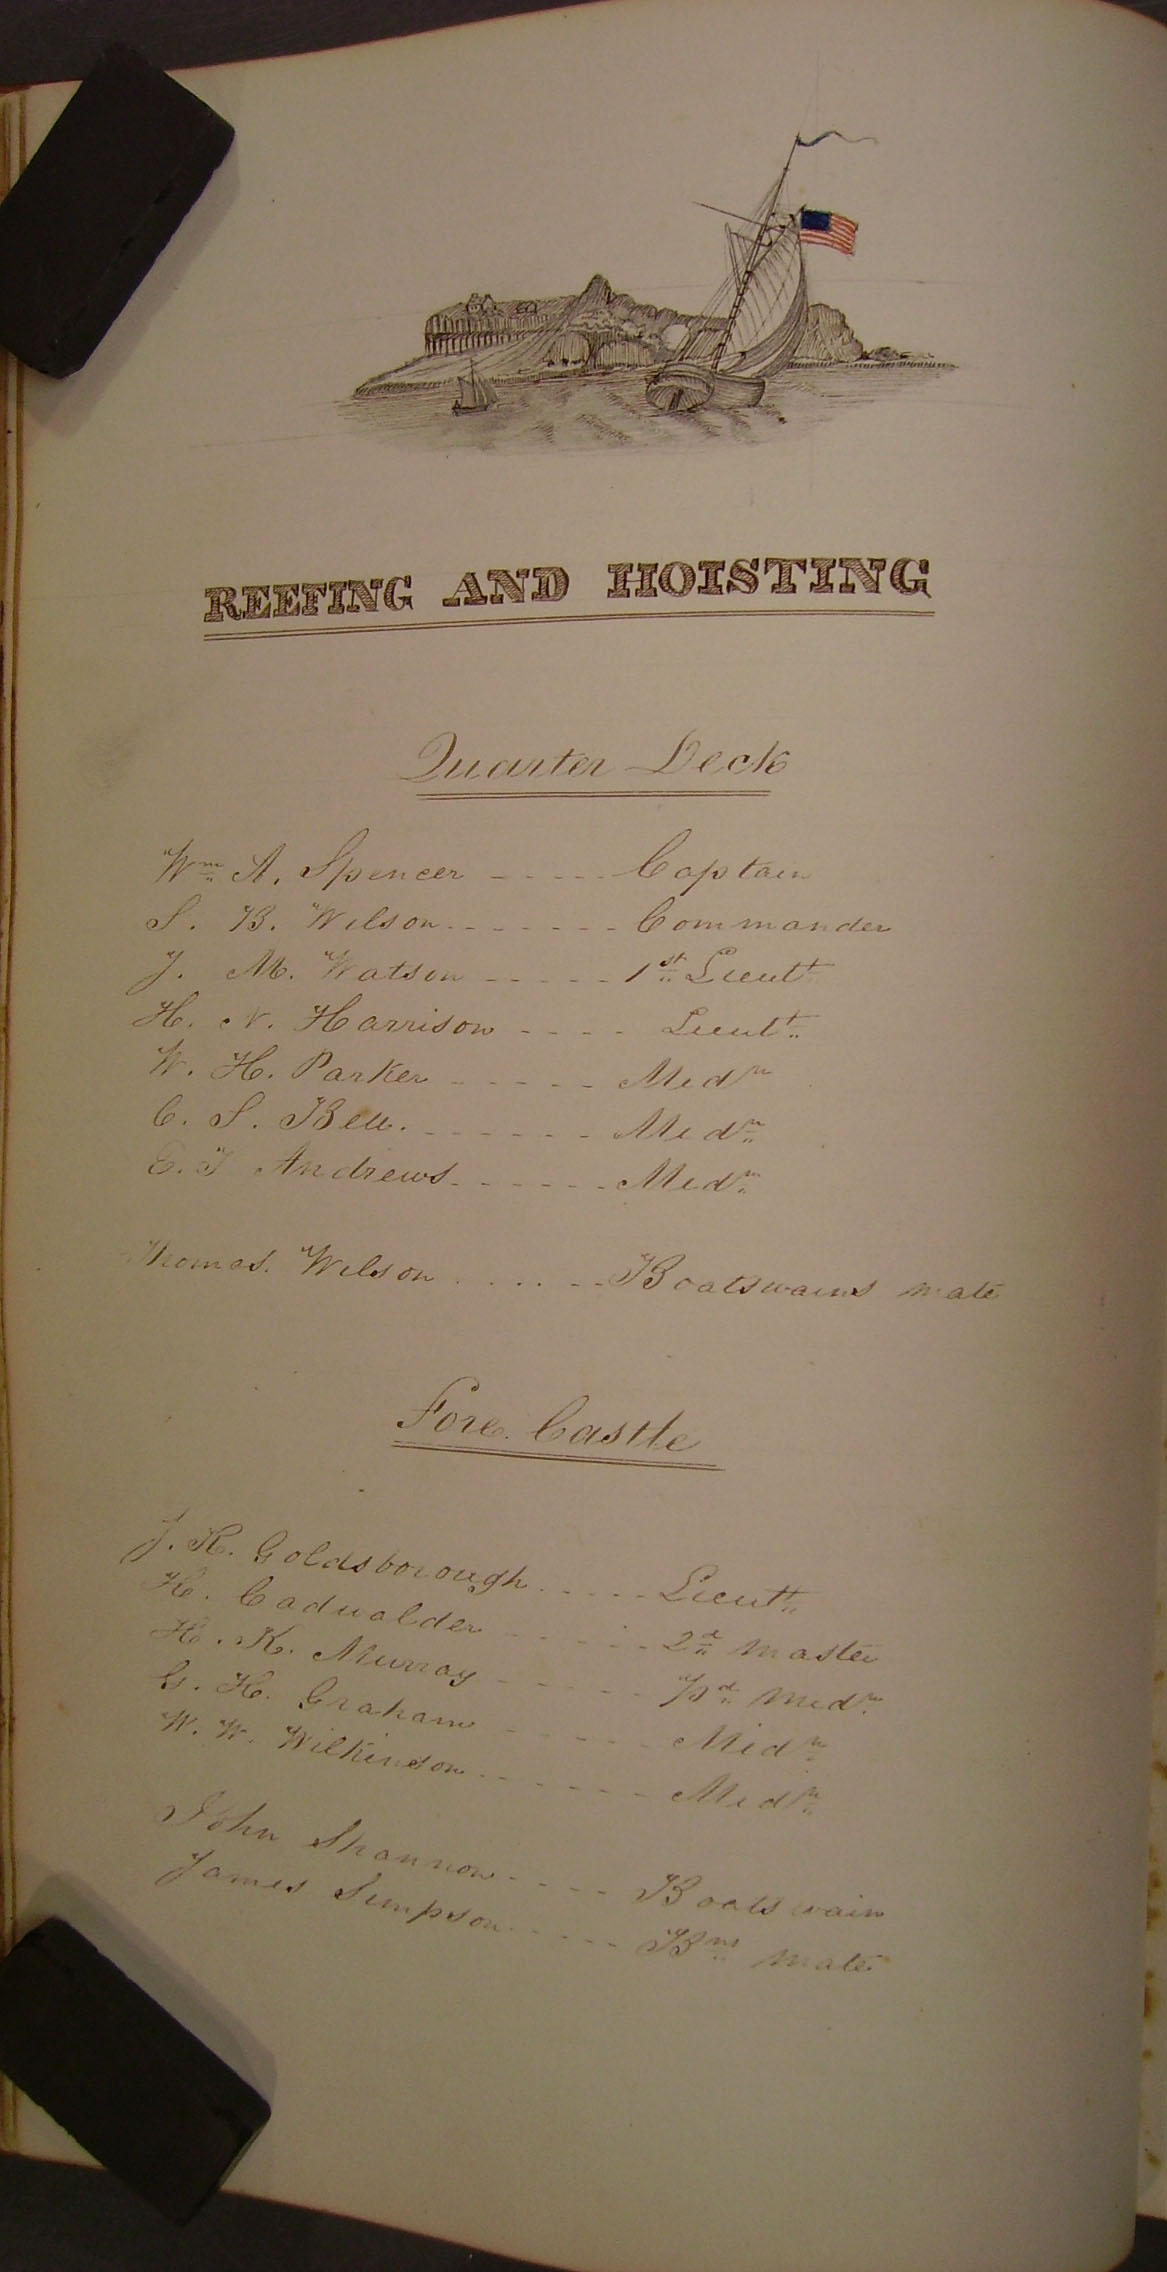 REEFING AND HOISTING
Quarter Deck
Wm A. Spencer ----- Captain
S. B. Wilson ------- Commander
J. M. Watson ----- 1st Lieutt
H. N. Harrison ---- Lieutt
W. H. Parker ------ Midn
C. S. Bell. ------ Midn
E. T Andrews ------ Midn
Thomas. Wilson ------ Boatswains mate
Fore. Castle
J. R. Goldsborough ----- Lieutt
H. Cadwalder ----- 2d master
H. K. Murray ----- Psd Midn
G. H. Graham ----- Midn
W. W. Wilkinson ------ Midn
John Shannon ---- Boatswain
James Simpson ----- Bns mate